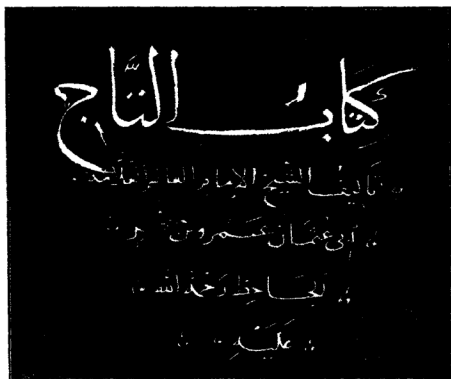 كتاب التاج
تأليف الشيخ الإمام العالم العلامة
ابى عثمان عمرو بن بحر
الجاحظ رحمة الله
عليه